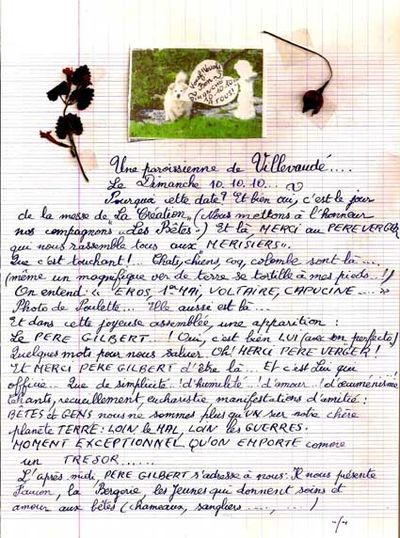 Ouaf! Ouaf!
Bon
dimanche
10.10.10
à tous!
Une paroissienne de Villevaudé....
Le Dimanche 10.10.10...
Pourquoi cette date? Et bien oui, c'est le jour
de la messe de "La Création" (Nous mettons à l'honneur
nos compagnons "Les Bêtes".) Et là, MERCI au PERE VERGER
qui nous rassemble tous aux "MERISIERS".
Que c'est touchant!... Chats, chiens, coq, colombe sont là...
(même un magnifique ver de terre se tortille à mes pieds..!)
On entend: "EROS, 1er MAI, VOLTAIRE, CAPUCINE...."
Photo de Poulette... Elle aussi est là...
Et dans cette joyeuse assemblée, une apparition:
Le PERE GILBERT....! Oui, c'est bien LUI (avec son perfecto)
Quelques mots pour nous saluer Oh! MERCI PERE VERGER!
Et MERCI PERE GILBERT d'être là... Et c'est Lui qui
officie.. Que de simplicité! d'humilité..! d'amour..! d'œcuménisme
Chants, recueillement, eucharistie, manifestations d'amitié:
BÊTES et GENS nous ne sommes plus qu'UN sur notre chère
planète TERRE: LOIN le MAL, LOIN les GUERRES.
MOMENT EXCEPTIONNEL QU'ON EMPORTE comme
un TRESOR......
L'après midi, PERE GILBERT s'adresse à nous: Il nous présente
Faucon, la Bergerie, les Jeunes qui donnent soins et
amour aux bêtes (chameaux, sangliers ...., ....)